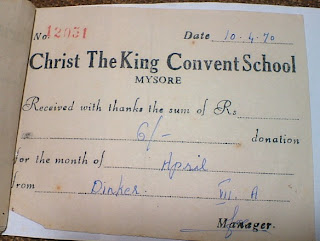 No. 12031 Date 10.4.70
Christ The King Convent School
MYSORE
Received with thanks the sum of Rs
6/- donation
for the month of April
from Dinker III. A
Manager.